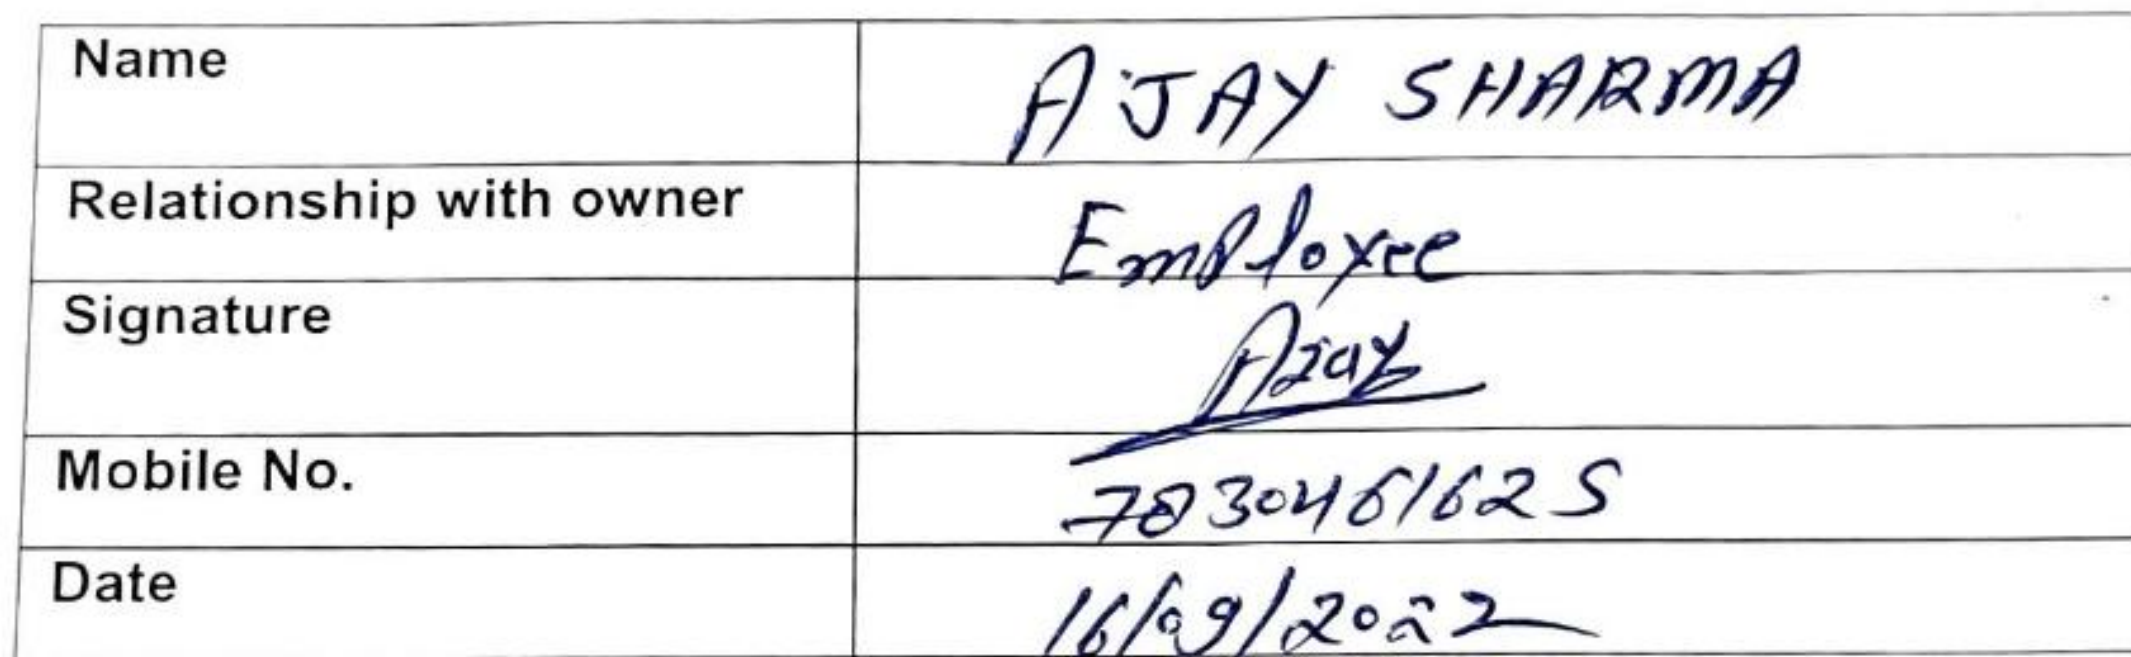 Name AJAY SHARMA
Relationship with owner Employee
Signature Ajay
Mobile No. 7830461625
Date 16/09/2022